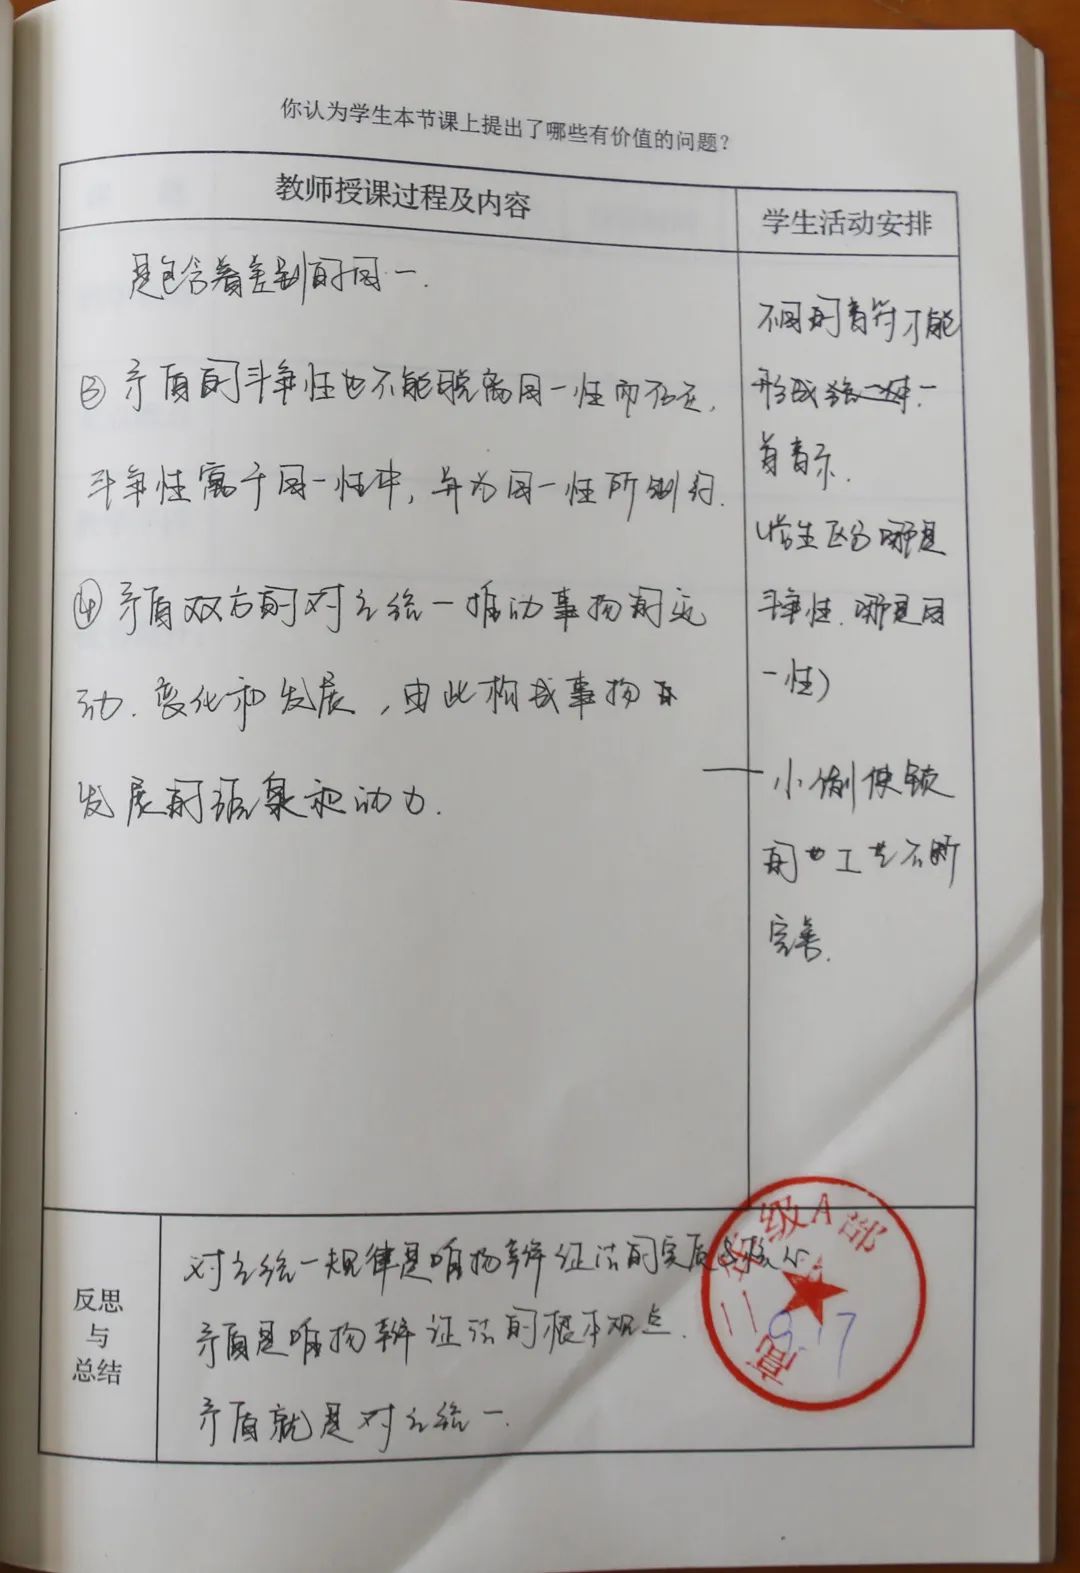 你认为学生本节课上提出了哪些有价值的问题?
教师授课过程及内容
学生活动安排
是包含着差别的同一.
③ 矛盾的斗争性也不能脱离同一性而存在,
斗争性寓于同一性中,并为同一性所制约.
④ 矛盾双方的对立统一推动事物的运
动.变化和发展,由此构成事物
发展的源泉和动力.
不同的音符才能
形成 一
首音乐.
学生区分哪是
斗争性.哪是同
一性)
—小偷使锁
的 工艺不断
完善.
反思
与
总结
对立统一规律是唯物辩证法的实质与核心
矛盾是唯物辩证法的根本观点.
矛盾就是对立统一.
高二年级A部
9.17